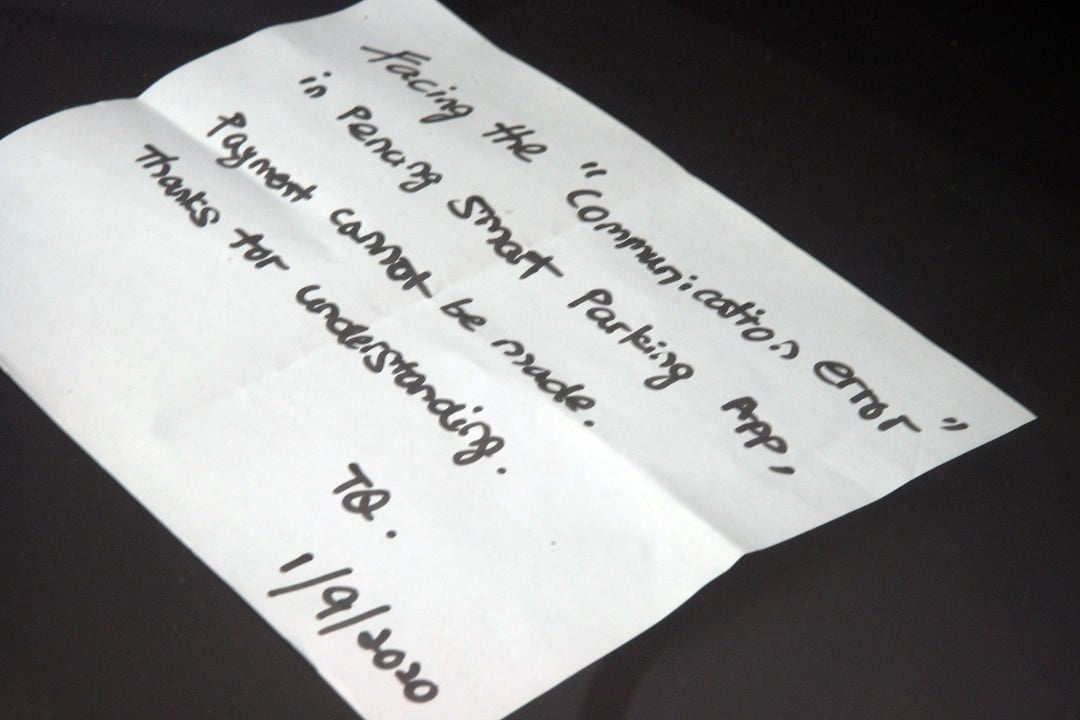 Facing the "Communication error"
in Penang Smart Parking App,
Payment cannot be made.
Thanks for understanding.
TQ.
1/9/2020